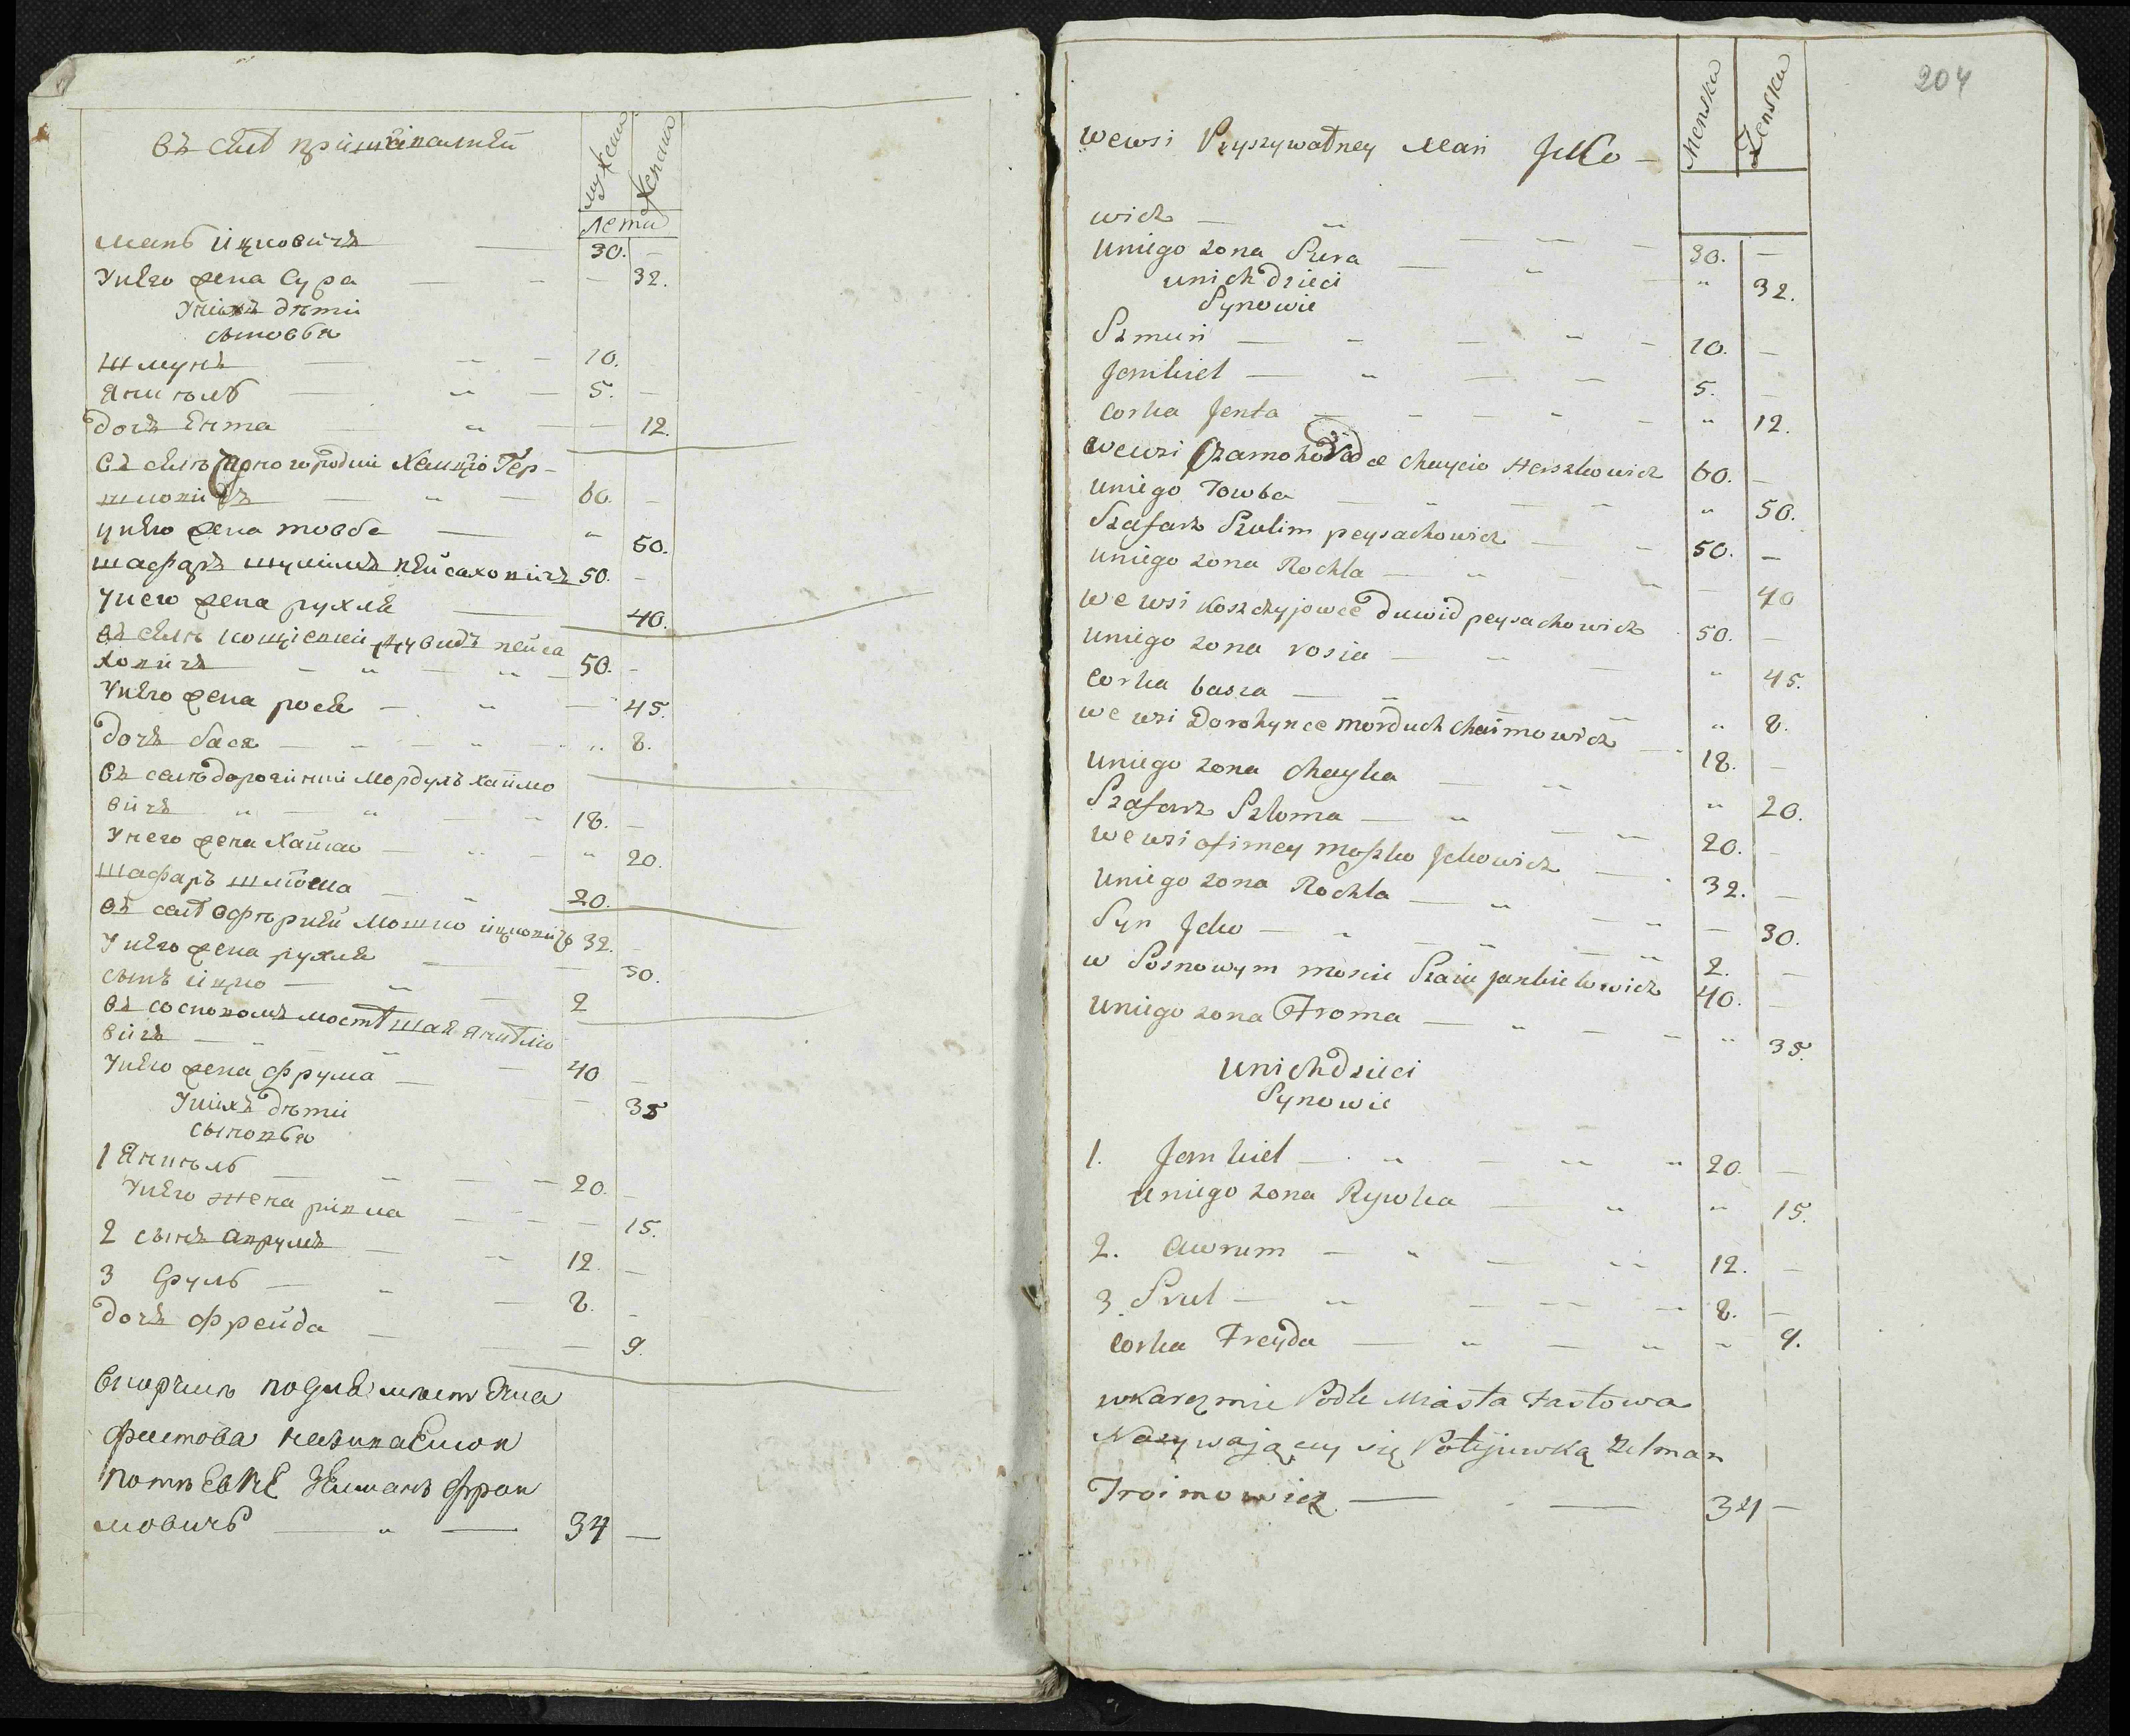 Въ селѣ
мужска
женска
Лета
Мань Ицковичъ — 30. —
Унего жена Сура — — 32.
Унихъ дѣти
сыновья
Шмунь — 10.
Янкель — 5. —
дочь Ента — — 12.
Въ селѣ Чорногородки Хаицio Гер-
шковичъ — 60. —
унего жена товба — " 50.
шафаръ шулимъ пейсаховичъ 50. —
Унего жена рухля — 40.
Въ селѣ кощіевки дувидъ пейса
ховичъ — 50. —
Унего жена рося — — 45.
дочь бася — " 8.
Въ селѣ дорогинки Мордухъ хаимо
вичъ — 18. —
Унего жена Хайка — " 20.
шафаръ шлёма — 20. —
въ селѣ Офѣрней Мошко ицковичъ 32. —
Унего жена рухля — — 30.
сынъ ицко — 2
въ сосновомъ мостѣ шая янкѣлю
вичъ — 40 —
Унего жена фрума — — 35
Унихъ дѣти
сыновья
1 Янкель — 20. —
Унего жена ривка — — 15.
2 сынъ аврумъ — 12. —
3 Сруль — 8. —
дочь фрейда — — 9.
вкорчмѣ подле мѣстечка
фастова называемой
потіевке Зелманъ фрои
мовичъ — " — 34 —
204
Menska
Zenska
wewsi Pryszywalney Mań Jcko —
wicz — 30. —
uniego zona Sura — " 32.
unich dzieci
Synowie
Szmuń — 10. —
Jankiel — 5. —
corka Jenta — " 12.
wewsi Czarnohorodce Chaycio Herszkowicz 60. —
uniego Towba — " 50.
Szafarz Szulim peysachowicz — 50. —
uniego zona Rochla — — 40
we wsi Koszczyjowce duwid peysachowicz 50. —
uniego zona rosia — " 45.
corka basza — " 8.
we wsi Dorohynce morduch chaimowicz — 18. —
uniego zona Chayka — " 20.
Szafarz Szloma — 20. —
we wsi ofirney moszko Jckowicz — 32. —
uniego zona Rochla — — 30.
Syn Jcko — 2. —
w Sosnowym moscie Szaia Jankielowicz 40. —
uniego zona Froma — " 35.
unich dzieci
Synowie
1. Jankiel — 20. —
uniego zona Rywka — " 15.
2. Awrum — 12. —
3 Srul — 8. —
corka Freyda — " 9.
wKarczmie Podle Miasta Fastowa
Nazywającey się Potyjuwką Zelman
Froimowicz — 34 —